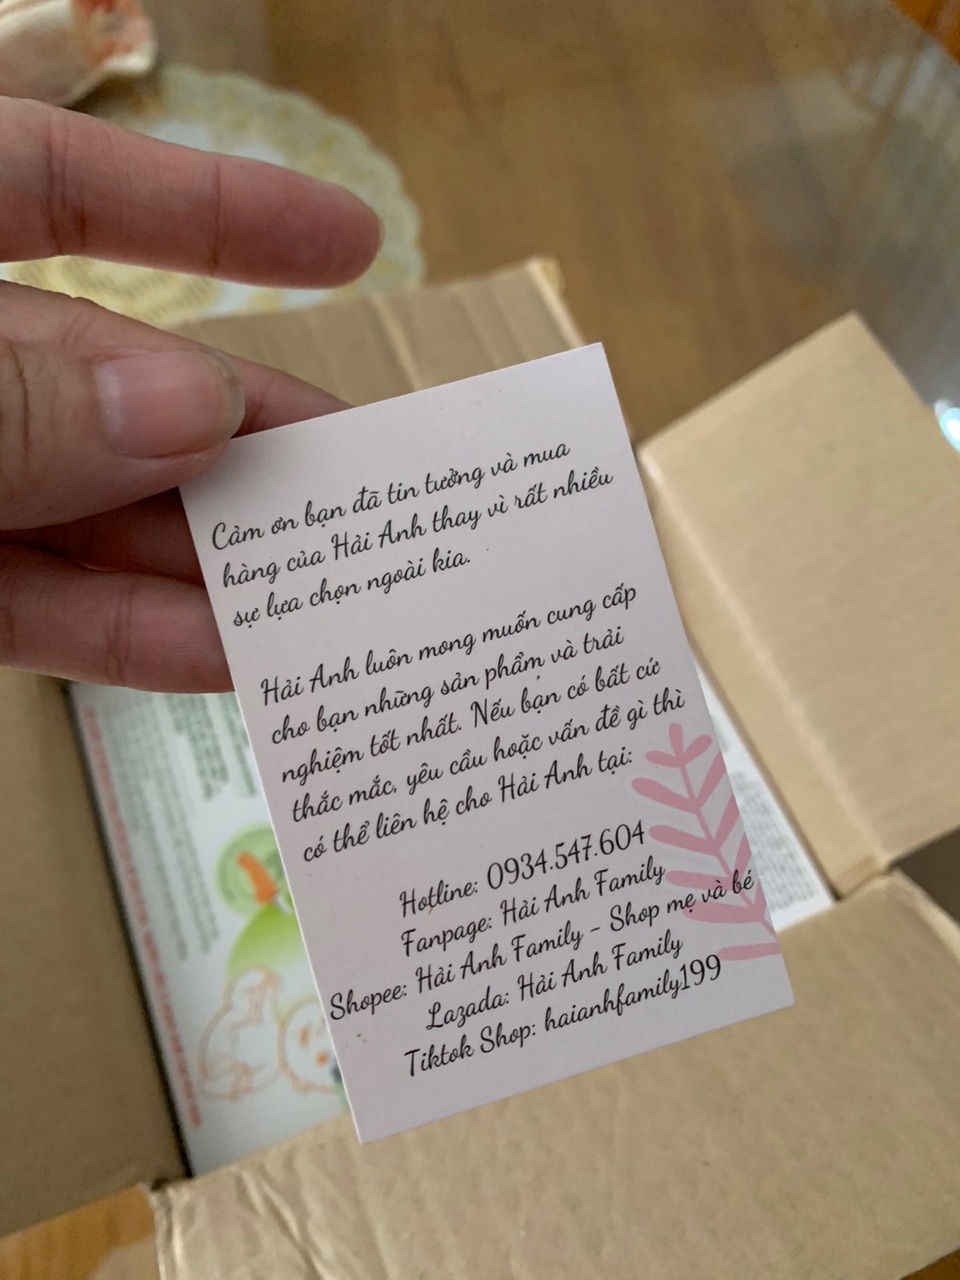 Cảm ơn bạn đã tin tưởng và mua
hàng của Hải Anh thay vì rất nhiều
sự lựa chọn ngoài kia.
Hải Anh luôn mong muốn cung cấp
cho bạn những sản phẩm và trải
nghiệm tốt nhất. Nếu bạn có bất cứ
thắc mắc, yêu cầu hoặc vấn đề gì thì
có thể liên hệ cho Hải Anh tại:
Hotline: 0934.547.604
Fanpage: Hải Anh Family
Shopee: Hải Anh Family - Shop mẹ và bé
Lazada: Hải Anh Family
Tiktok Shop: haianhfamily199